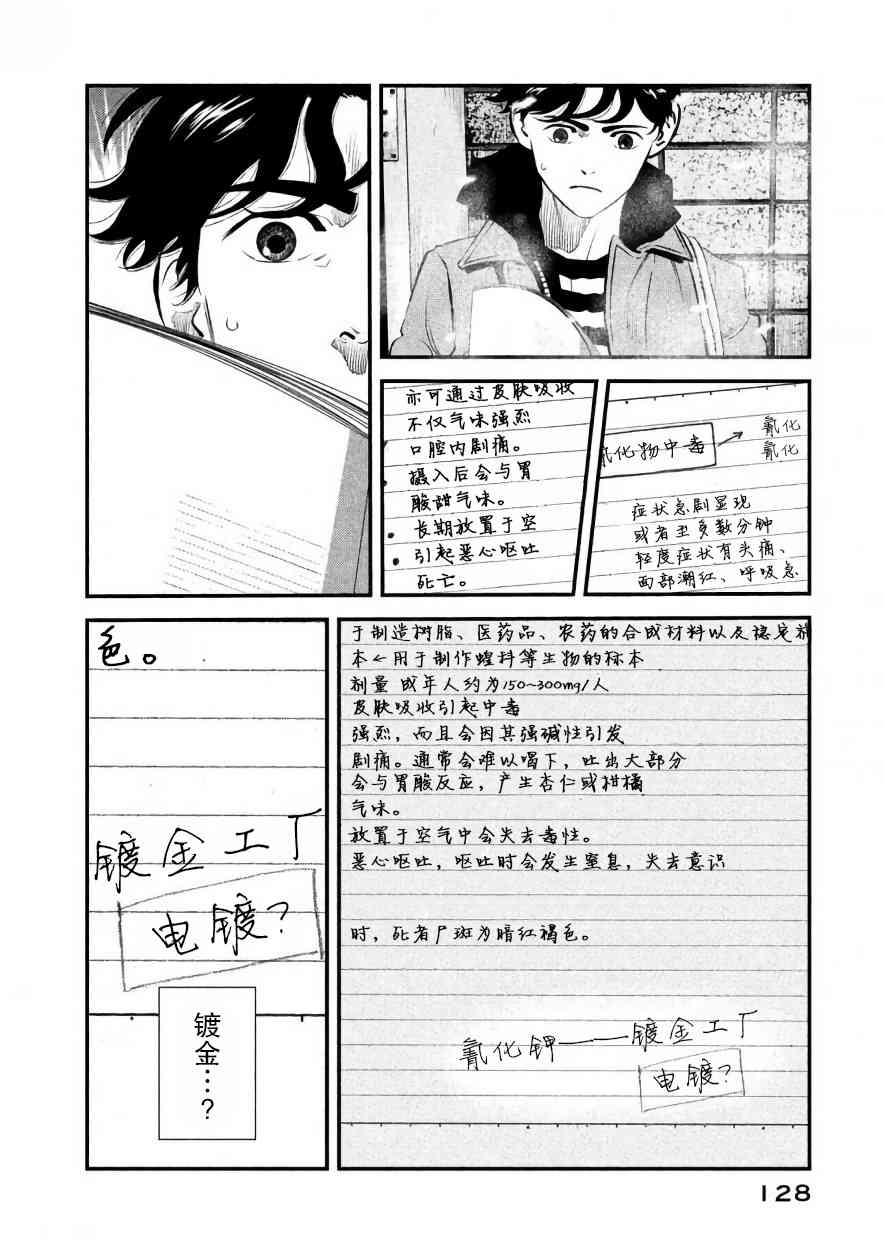 氰化物中毒
氰化
氰化
症状急剧显现
或者至多数分钟
轻度症状有头痛、
面部潮红、呼吸急
亦可通过皮肤吸收
不仅气味强烈
口腔内剧痛。
摄入后会与胃
酸甜气味。
长期放置于空
引起恶心呕吐
死亡。
于制造树脂、医药品、农药的合成材料以及稳定
本←用于制作蝗科等生物的标本
剂量 成年人约为150~300mg/人
皮肤吸收引起中毒
强烈，而且会因其强碱性引发
剧痛。通常会难以咽下，吐出大部分
会与胃酸反应，产生杏仁或柑橘
气味。
放置于空气中会失去毒性。
恶心呕吐，呕吐时会发生窒息，失去意识
时，死者尸斑为暗红褐色。
氰化钾——镀金工厂
电镀？
色。
镀金工厂
电镀？
镀金…？
128